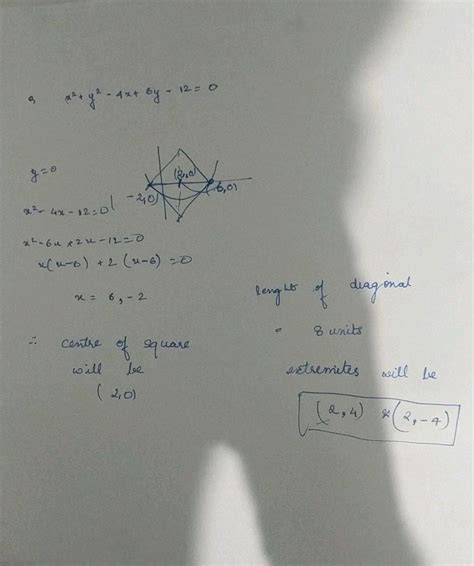 x² + y² - 4x + 6y - 12 = 0
y = 0
(2,0)
-2,0)
(6,0)
x² - 4x - 12 = 0
x² - 6x + 2x - 12 = 0
x(x-6) + 2(x-6) = 0
x = 6, -2
∴ centre of square
will be
(2,0)
lenght of diagonal
= 8 units
extremites will be
(2,4) & (2,-4)